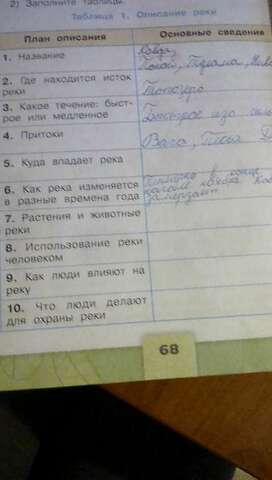 2) Заполните таблицы.
Таблица 1. Описание реки
План описания
Основные сведения
1. Название
Ковда,
2. Где находится исток
реки
Топозеро
3. Какое течение: быст-
рое или медленное
Быстрое изо
4. Притоки
5. Куда впадает река
6. Как река изменяется
в разные времена года
в конце
начале ноября
замерзает
7. Растения и животные
реки
8. Использование реки
человеком
9. Как люди влияют на
реку
10. Что люди делают
для охраны реки
68